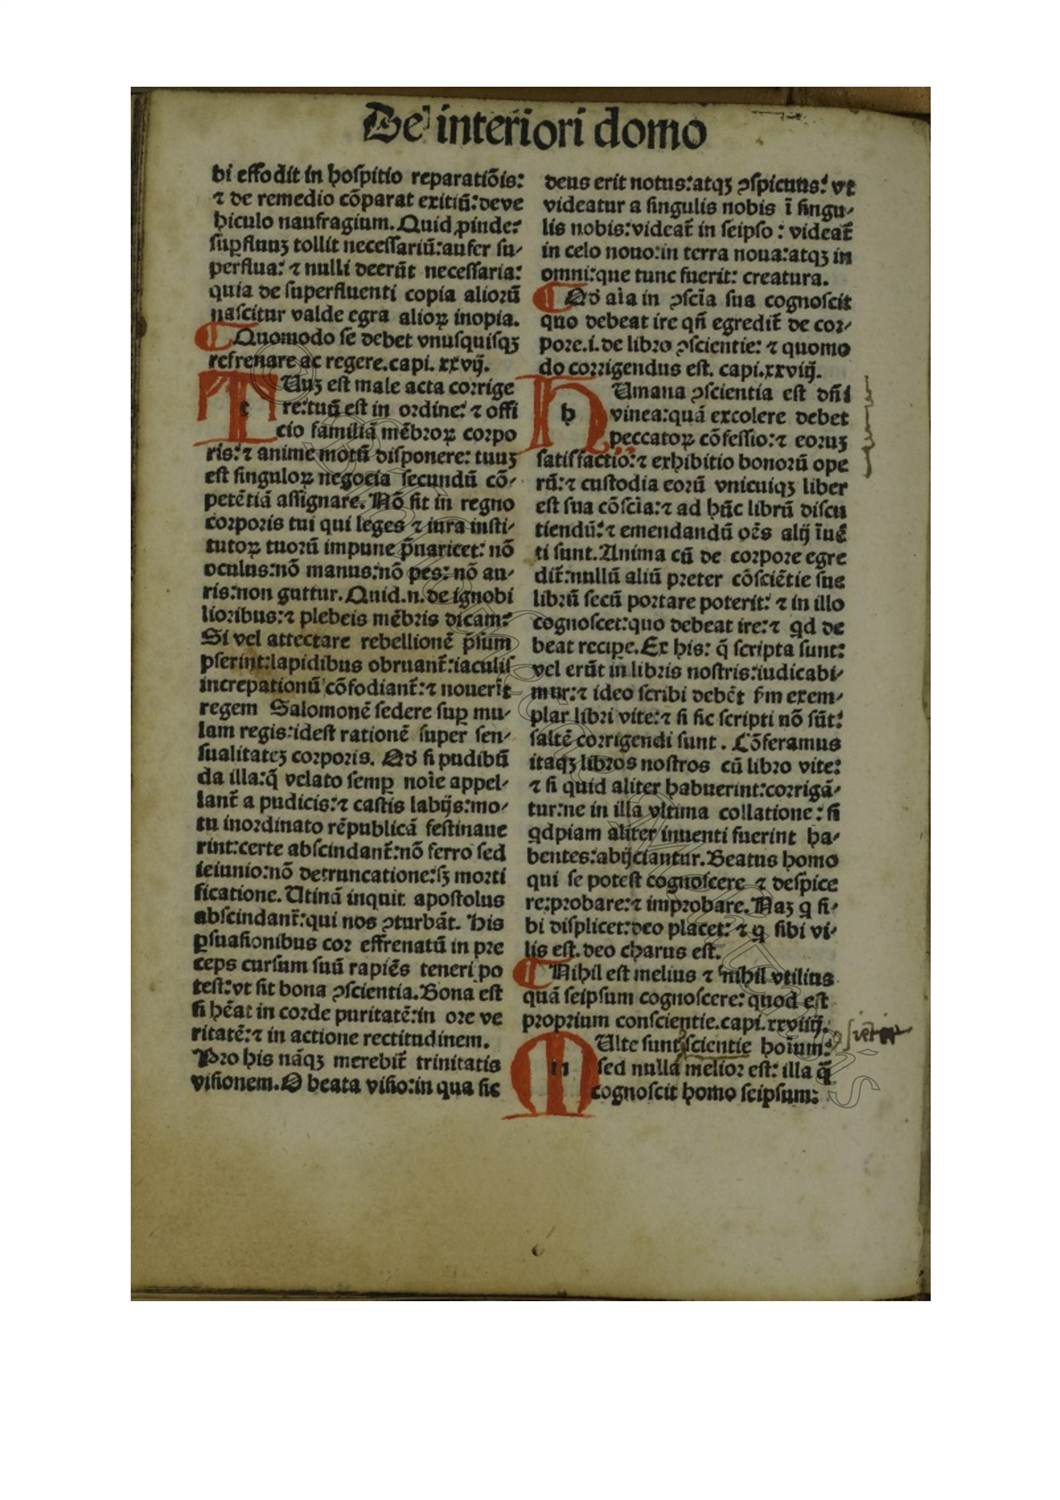 De interiori domo
bi effodit in hospitio reparatiōis:
⁊ de remedio cōparat exitiū: deve
hiculo naufragium. Quid ꝓinde?
suꝑfluuꝫ tollit necessariū: aufer su/
perflua: ⁊ nulli deerūt necessaria:
quia de superfluenti copia aliorū
nascitur valde egra alioꝝ inopia.
Quomodo se debet vnusquisqꝫ
refrenare ac regere. capi. xxvij.
t Uuꝫ est male acta corrige
re: tuū est in ordine: ⁊ offi
cio familiā mēbroꝝ corpo
ris: ⁊ anime motū disponere: tuuꝫ
est singuloꝝ negocia secundū cō/
petētiā assignare. Nō sit in regno
corporis tui qui leges ⁊ iura insti/
tutoꝝ tuorū impune p̄uaricet: nō
oculus: nō manus: nō pes: nō au/
ris: non guttur. Quid .n. de ignobi
lioribus: ⁊ plebeis mēbris dicam?
Si vel attectare rebellionē p̄sum
pserint: lapidibus obruant̄: iaculis
increpationū cōfodiant̄: ⁊ nouerīt
regem Salomonē sedere suꝑ mu/
lam regis: idest rationē super sen/
sualitateꝫ corporis. Qđ si pudibū
da illa: q̄ velato semꝑ noīe appel/
lant̄ a pudicis: ⁊ castis labijs: mo/
tu inordinato rēpublicā festinaue
rint: certe abscindant̄: nō ferro sed
ieiunio: nō detruncatione: sꝫ morti
ficatione. Utinā inquit apostolus
abscindant̄: qui nos ꝯturbāt. His
ꝑsuasionibus cor effrenatū in pre
ceps cursum suū rapiēs teneri po
test: vt sit bona ꝯscientia. Bona est
si hēat in corde puritatē: in ore ve
ritatē: ⁊ in actione rectitudinem.
Pro his nāqꝫ merebit̄ trinitatis
visionem. O beata visio: in qua sic
deus erit notus: atqꝫ ꝯspicuus: vt
videatur a singulis nobis ī singu/
lis nobis: videat̄ in seipso: videat̄
in celo nouo: in terra noua: atqꝫ in
omni: que tunc fuerit: creatura.
Qđ aīa in ꝯscīa sua cognoscit
quo debeat ire qn̄ egredit̄ de cor/
pore .i. de libro ꝯscientie: ⁊ quomo
do corrigendus est. capi. xxviij.
h Umana ꝯscientia est dn̄i
vinea: quā excolere debet
peccatoꝝ cōfessio: ⁊ eoruꝫ
satisfactio: ⁊ exhibitio bonorū ope
rū: ⁊ custodia eorū vnicuiqꝫ liber
est sua cōscīa: ⁊ ad hūc librū discu
tiendū: ⁊ emendandū oēs alij īuē
ti sunt. Anima cū de corpore egre
dit̄: nullū aliū preter cōsciētie sue
librū secū portare poterit: ⁊ in illo
cognoscet: quo debeat ire: ⁊ qd de
beat recipe. Ex his: q̄ scripta sunt:
vel erūt in libris nostris: iudicabi/
mur: ⁊ ideo scribi debēt ẜm exem/
plar libri vite: ⁊ si sic scripti nō sūt:
saltē corrigendi sunt. Cōferamus
itaqꝫ libros nostros cū libro vite:
⁊ si quid aliter habuerint: corrigā/
tur: ne in illa vltima collatione: si
qdpiam aliter inuenti fuerint ha/
bentes: abijciantur. Beatus homo
qui se potest cognoscere ⁊ despice
re: probare: ⁊ improbare. Naꝫ q si/
bi displicet: deo placet: ⁊ q sibi vi/
lis est. deo charus est.
Nihil est melius ⁊ nihil vtilius
quā seipsum cognoscere: quod est
proprium conscientie. capi. xxviiij.
m Ulte sunt scientie hoīum:
sed nulla melior est: illa q̄
cognoscit homo seipsum: